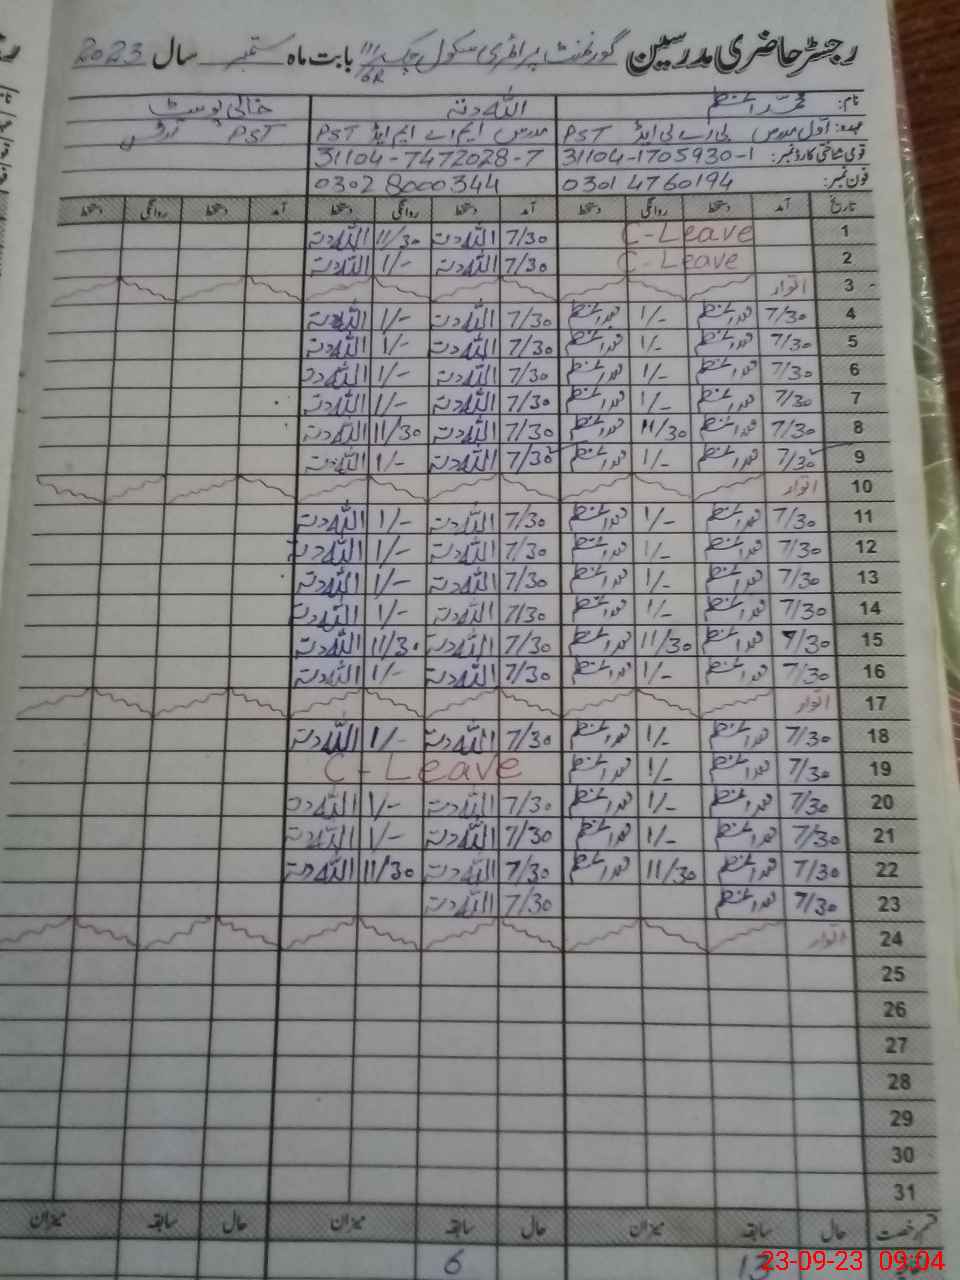 رجسٹر حاضری مدرسین گورنمنٹ پرائمری سکول چک 111/6R بابت ماہ ستمبر سال 2023
نام: محمد اعظم اللہ دتہ خالی پوسٹ
عہدہ: اول مدرس بی اے بی ایڈ PST مدرس ایم اے ایم ایڈ PST PST
قومی شناختی کارڈ نمبر: 31104-1705930-1 31104-7472028-7
فون نمبر: 0301 4760194 0302 8000344
تاریخ آمد دستخط روانگی دستخط آمد دستخط روانگی دستخط آمد دستخط روانگی دستخط
1 C-Leave 7/30 اللہ دتہ 11/30 اللہ دتہ
2 C-Leave 7/30 اللہ دتہ 1/- اللہ دتہ
3 اتوار
4 7/30 محمد اعظم 1/- محمد اعظم 7/30 اللہ دتہ 1/- اللہ دتہ
5 7/30 محمد اعظم 1/- محمد اعظم 7/30 اللہ دتہ 1/- اللہ دتہ
6 7/30 محمد اعظم 1/- محمد اعظم 7/30 اللہ دتہ 1/- اللہ دتہ
7 7/30 محمد اعظم 1/- محمد اعظم 7/30 اللہ دتہ 1/- اللہ دتہ
8 7/30 محمد اعظم 11/30 محمد اعظم 7/30 اللہ دتہ 11/30 اللہ دتہ
9 7/30 محمد اعظم 1/- محمد اعظم 7/30 اللہ دتہ 1/- اللہ دتہ
10 اتوار
11 7/30 محمد اعظم 1/- محمد اعظم 7/30 اللہ دتہ 1/- اللہ دتہ
12 7/30 محمد اعظم 1/- محمد اعظم 7/30 اللہ دتہ 1/- اللہ دتہ
13 7/30 محمد اعظم 1/- محمد اعظم 7/30 اللہ دتہ 1/- اللہ دتہ
14 7/30 محمد اعظم 1/- محمد اعظم 7/30 اللہ دتہ 1/- اللہ دتہ
15 7/30 محمد اعظم 11/30 محمد اعظم 7/30 اللہ دتہ 11/30 اللہ دتہ
16 7/30 محمد اعظم 1/- محمد اعظم 7/30 اللہ دتہ 1/- اللہ دتہ
17 اتوار
18 7/30 محمد اعظم 1/- محمد اعظم 7/30 اللہ دتہ 1/- اللہ دتہ
19 7/30 محمد اعظم 1/- محمد اعظم C-Leave
20 7/30 محمد اعظم 1/- محمد اعظم 7/30 اللہ دتہ 1/- اللہ دتہ
21 7/30 محمد اعظم 1/- محمد اعظم 7/30 اللہ دتہ 1/- اللہ دتہ
22 7/30 محمد اعظم 11/30 محمد اعظم 7/30 اللہ دتہ 11/30 اللہ دتہ
23 7/30 محمد اعظم 7/30 اللہ دتہ
24 اتوار
25
26
27
28
29
30
31
قسم رخصت حال سابقہ میزان حال سابقہ میزان حال سابقہ میزان
6
23-09-23 09:04